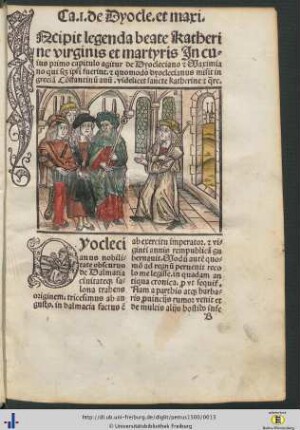 Ca.i. de Dyocle. et maxi.
Incipit legenda beate Katheri
ne virginis et martyris In cu
ius primo capitulo agitur de Dyocleciano et Maximia
no qui fuerint. et quomodo dyoclecianus misit in
grecia videlicet sancte katherine
Dyocleci
anus nobili
tate obscurus
de Dalmacia
ciuitateqz sa
lona trahens
originem. tricesimus ab au
gusto. in dalmacia factus
ab exercitu imperator. et vi
ginti annis rempublicã gu
bernauit. quo
ad regnũ peruenit reco
lo me legisse. in quadam an
tiqua cronica. ꝓut sequit᷑.
Nam a parthis atqz barba
ris ꝓuincijs rumor venit et
de multis alijs
B
http://dl.ub.uni-freiburg.de/diglit/petrus1500/0013
© Universitätsbibliothek Freiburg